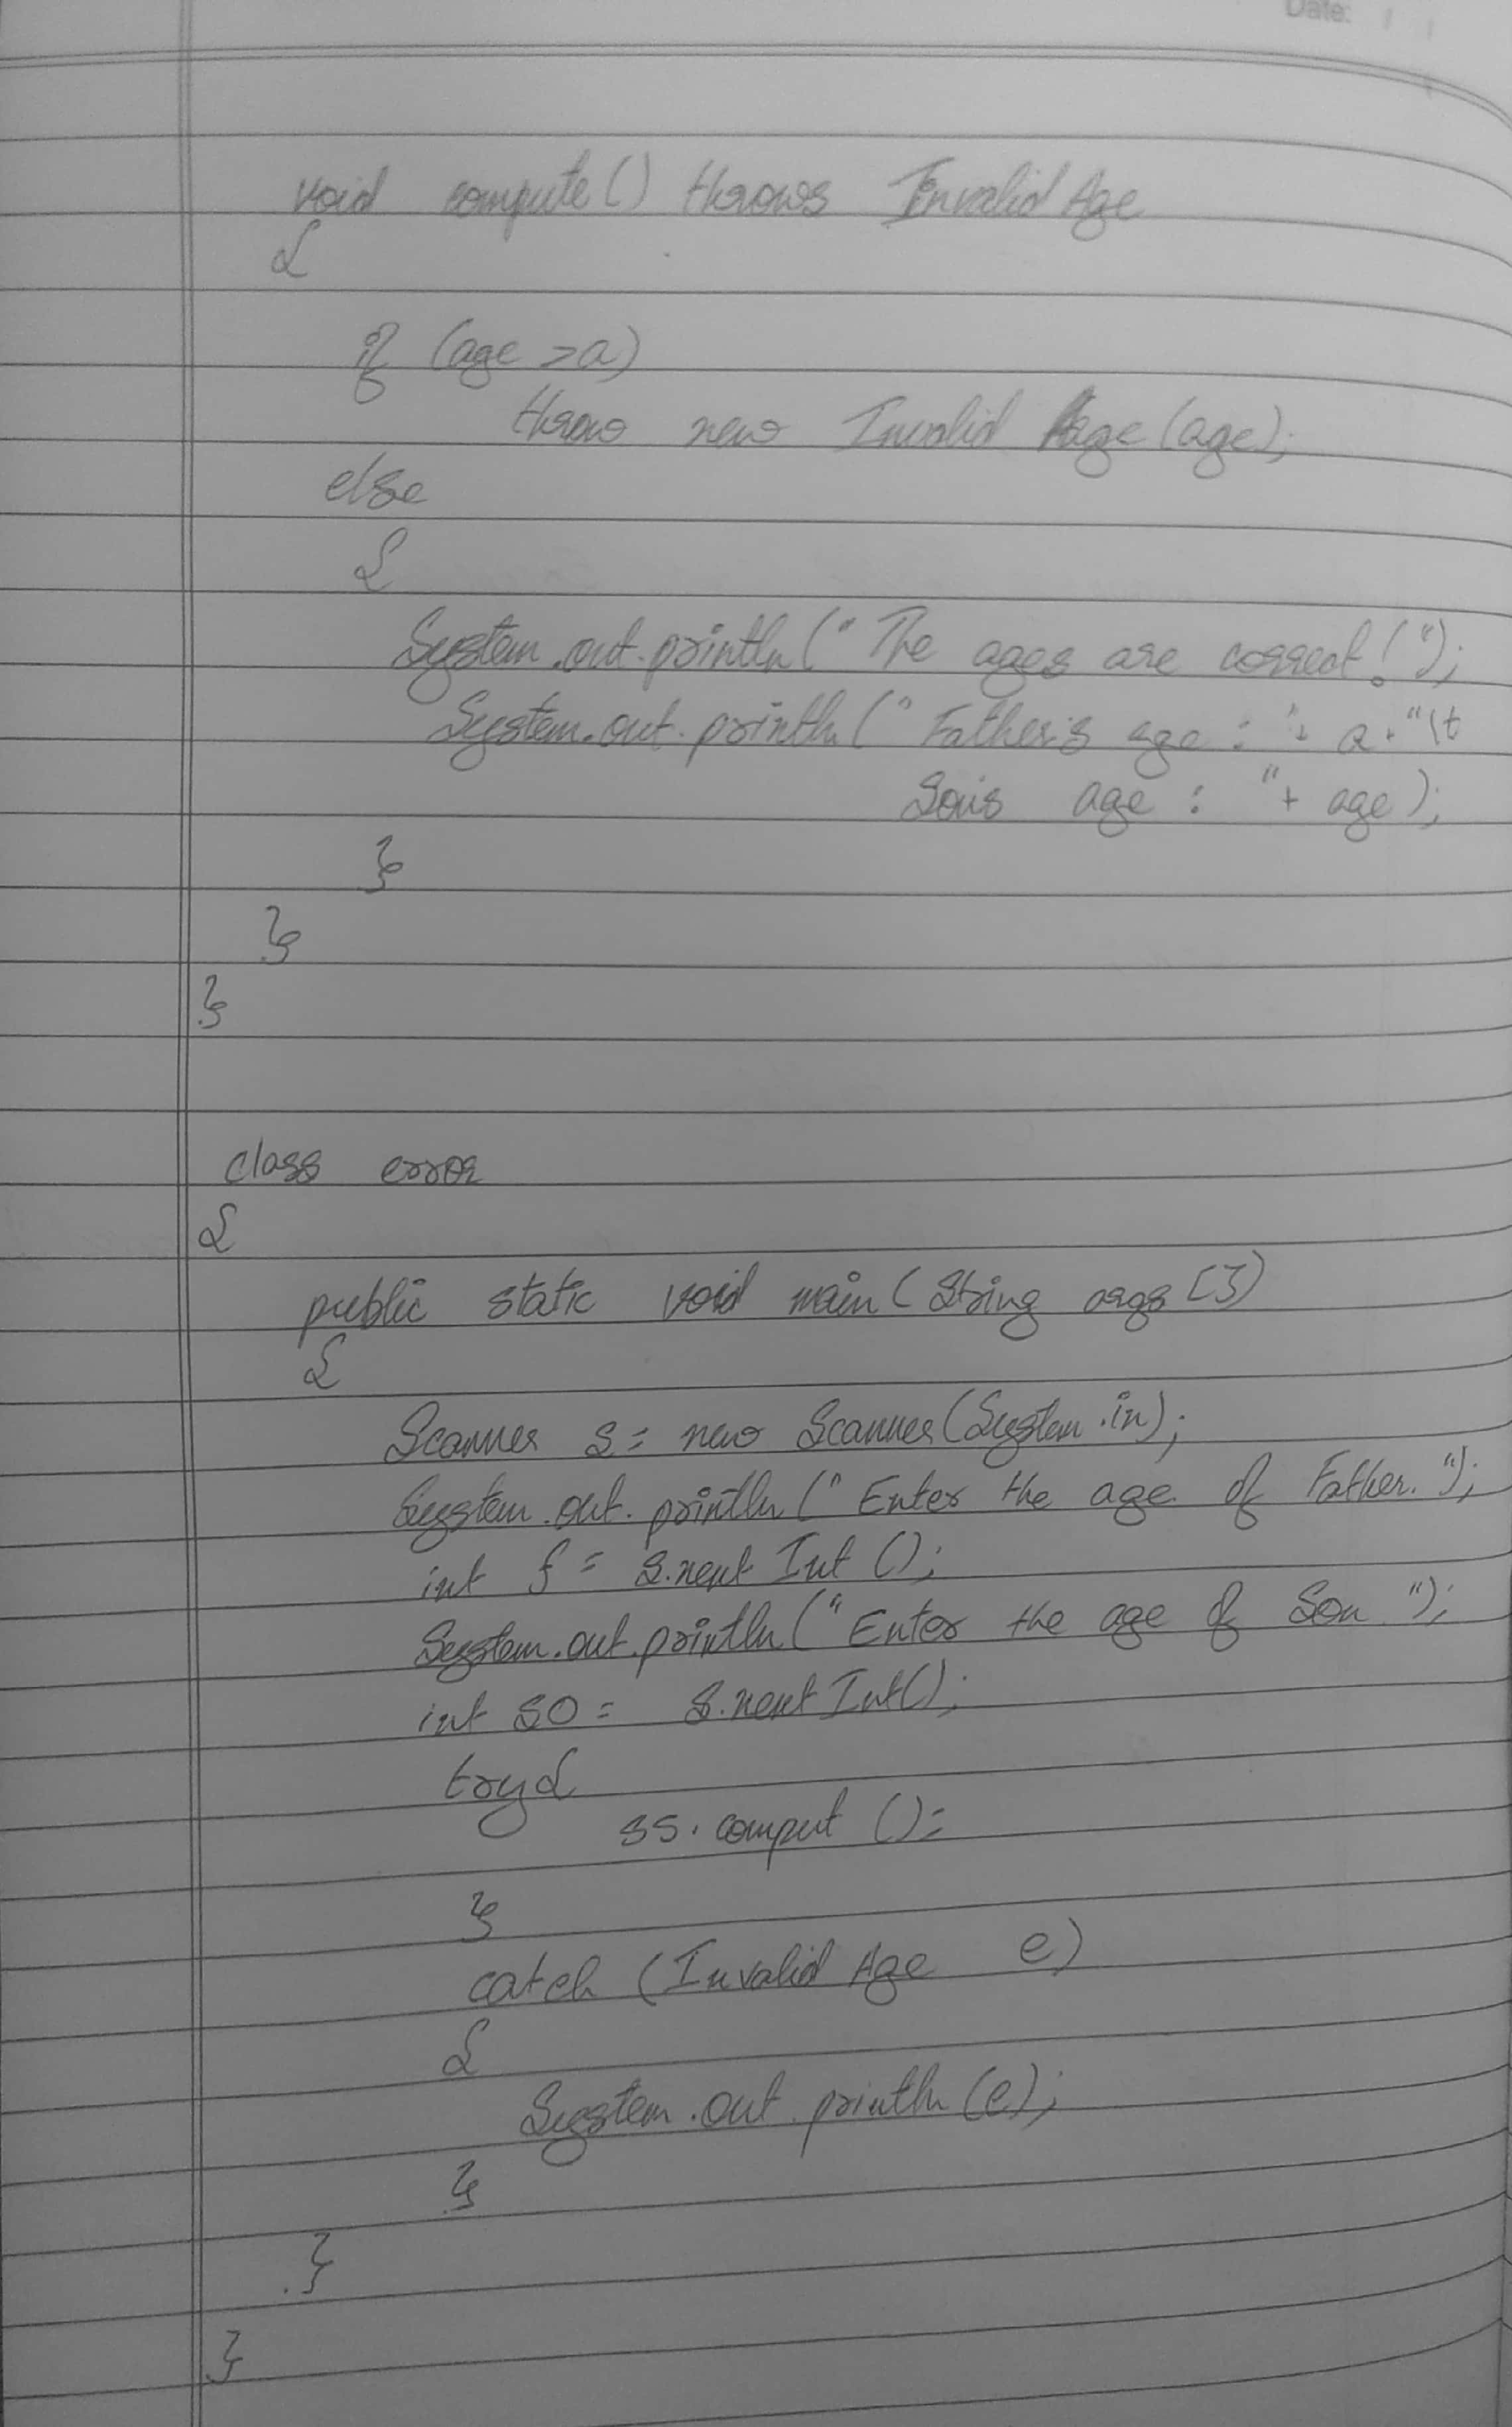 Date:
void compute() throws InvalidAge
{
if (age >a)
throw new Invalid Age (age);
else
{
System.out.println(" The ages are correct!");
System.out.println(" Father's age : "+ a+"\t
Son's age : "+ age);
}
}
}
class error
{
public static void main (String args [])
{
Scanner s= new Scanner(System.in);
System.out.println(" Enter the age of Father. ");
int f = s.next Int ();
System.out.println("Enter the age of Son ");
int so = s.next Int();
try{
ss. comput ();
}
catch (Invalid Age e)
{
System.out.println (e);
}
}
}